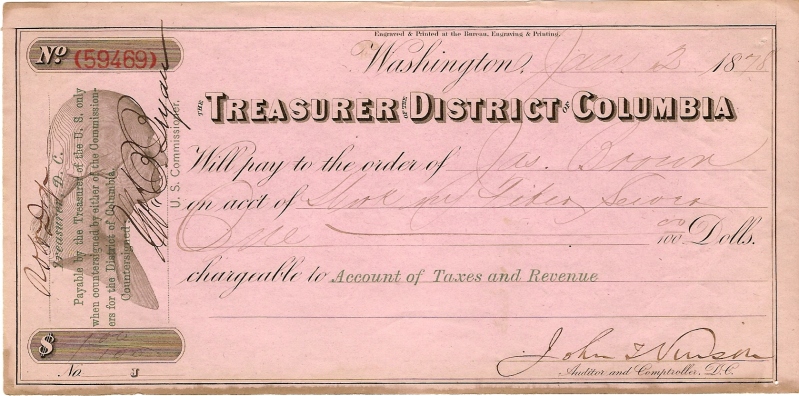 Engraved & Printed at the Bureau, Engraving & Printing.
No (59469)
Washington, Jan. 2 1878
THE TREASURER OF THE DISTRICT OF COLUMBIA
Will pay to the order of Jas. Brown
on acct of Work on Tiber Sewer
One 00/100 Dolls.
chargeable to Account of Taxes and Revenue
Auditor and Comptroller, D.C.
John
Treasurer, D. C.
Payable by the Treasurer of the U. S. only
when countersigned by either of the Commission-
ers for the District of Columbia.
Countersigned
U. S. Commissioner.
$ 1 00/100
No. J